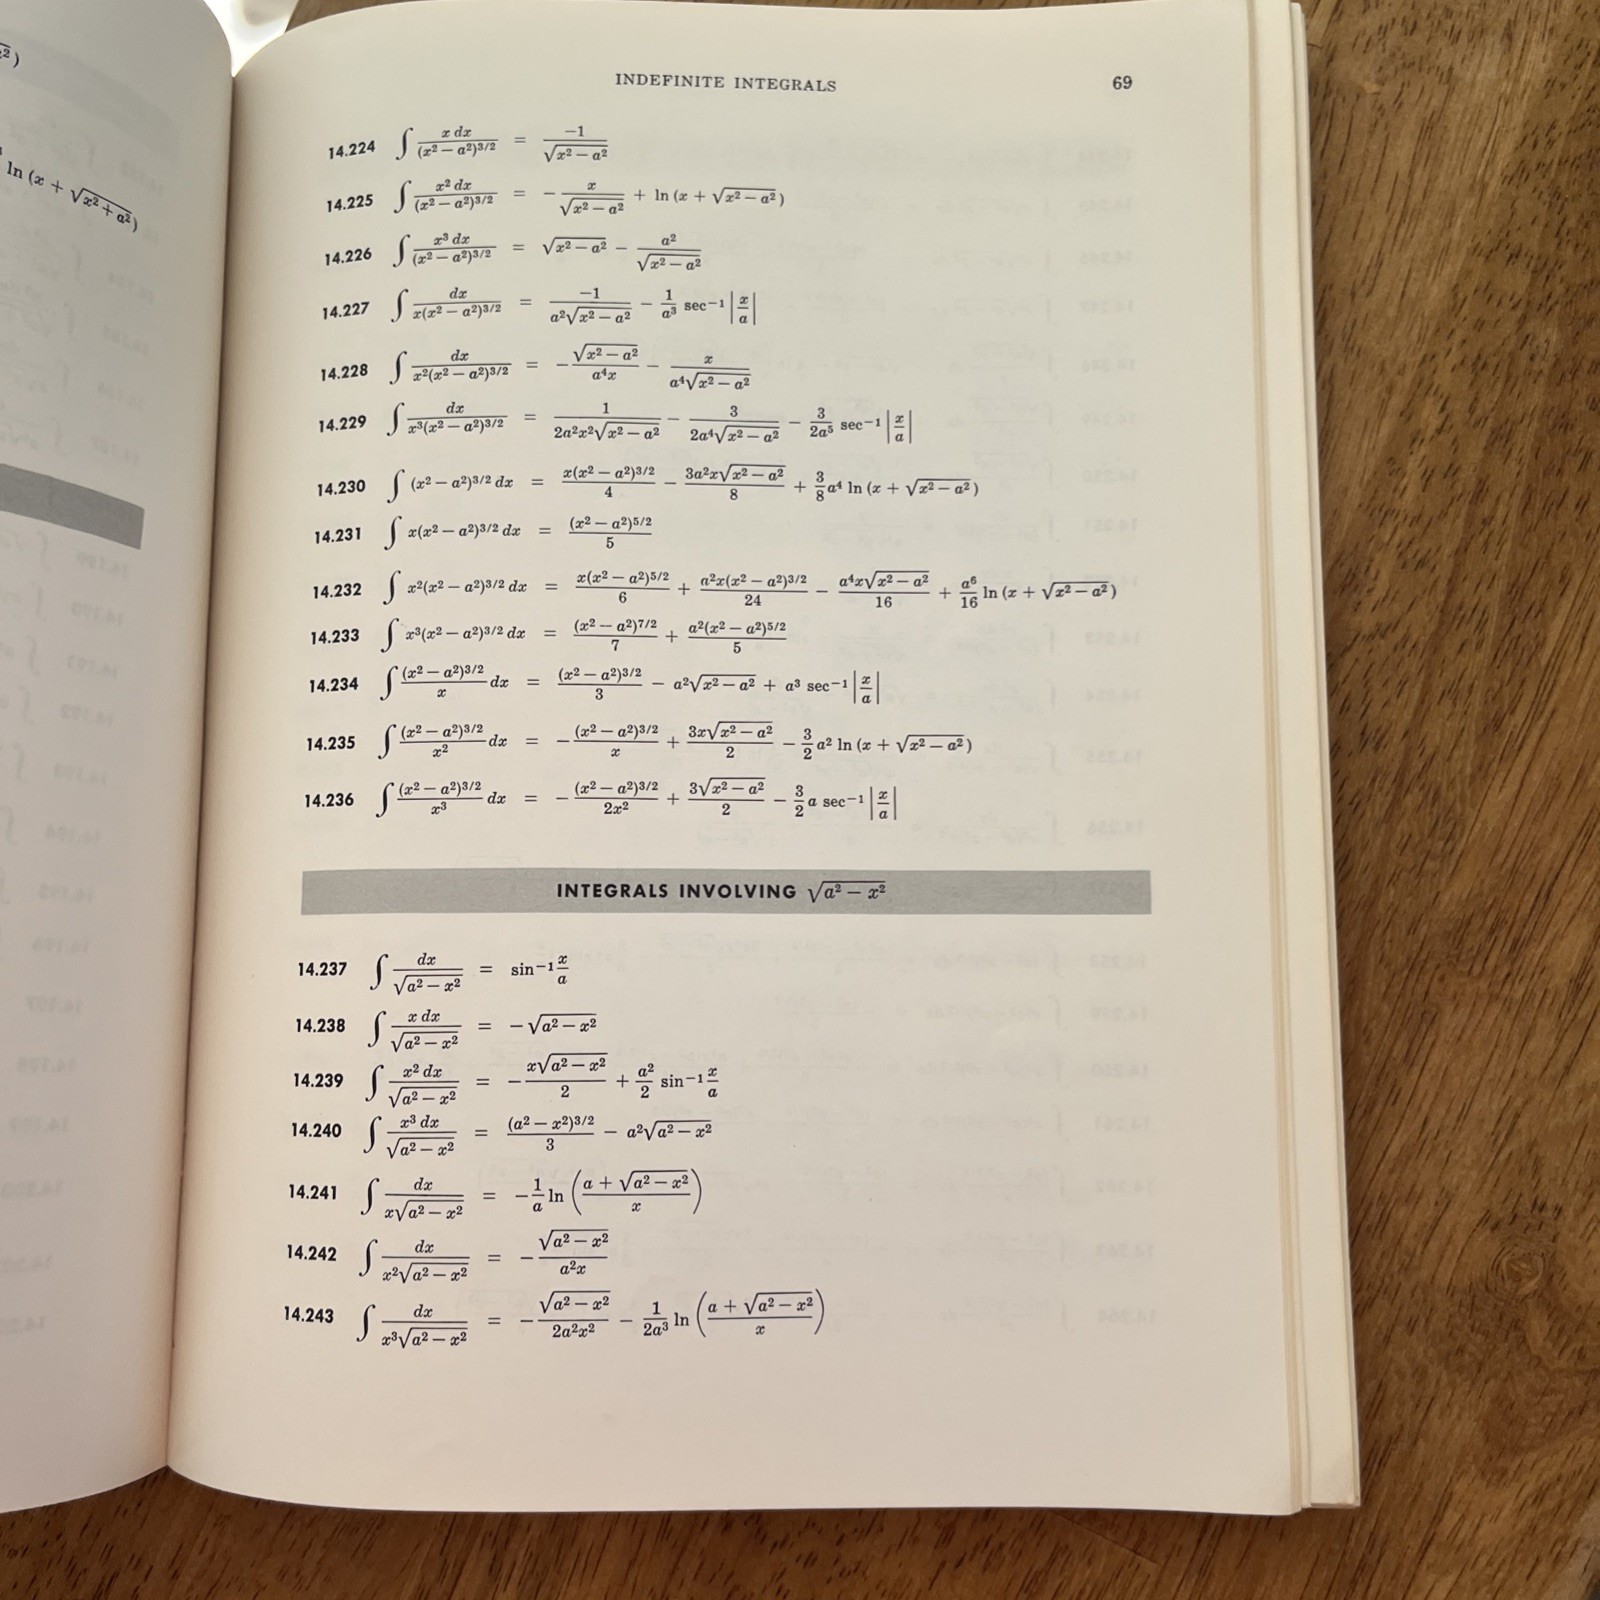 ²)
ln (x + √(x² + a²))
INDEFINITE INTEGRALS 69
14.224 ∫ x dx / (x² − a²)^3/2 = −1 / √(x² − a²)
14.225 ∫ x² dx / (x² − a²)^3/2 = − x / √(x² − a²) + ln (x + √(x² − a²))
14.226 ∫ x³ dx / (x² − a²)^3/2 = √(x² − a²) − a² / √(x² − a²)
14.227 ∫ dx / x(x² − a²)^3/2 = −1 / a²√(x² − a²) − 1/a³ sec⁻¹ |x/a|
14.228 ∫ dx / x²(x² − a²)^3/2 = − √(x² − a²) / a⁴x − x / a⁴√(x² − a²)
14.229 ∫ dx / x³(x² − a²)^3/2 = 1 / 2a²x²√(x² − a²) − 3 / 2a⁴√(x² − a²) − 3/2a⁵ sec⁻¹ |x/a|
14.230 ∫ (x² − a²)^3/2 dx = x(x² − a²)^3/2 / 4 − 3a²x√(x² − a²) / 8 + 3/8 a⁴ ln (x + √(x² − a²))
14.231 ∫ x(x² − a²)^3/2 dx = (x² − a²)^5/2 / 5
14.232 ∫ x²(x² − a²)^3/2 dx = x(x² − a²)^5/2 / 6 + a²x(x² − a²)^3/2 / 24 − a⁴x√(x² − a²) / 16 + a⁶/16 ln (x + √(x² − a²))
14.233 ∫ x³(x² − a²)^3/2 dx = (x² − a²)^7/2 / 7 + a²(x² − a²)^5/2 / 5
14.234 ∫ (x² − a²)^3/2 / x dx = (x² − a²)^3/2 / 3 − a²√(x² − a²) + a³ sec⁻¹ |x/a|
14.235 ∫ (x² − a²)^3/2 / x² dx = − (x² − a²)^3/2 / x + 3x√(x² − a²) / 2 − 3/2 a² ln (x + √(x² − a²))
14.236 ∫ (x² − a²)^3/2 / x³ dx = − (x² − a²)^3/2 / 2x² + 3√(x² − a²) / 2 − 3/2 a sec⁻¹ |x/a|
INTEGRALS INVOLVING √(a² − x²)
14.237 ∫ dx / √(a² − x²) = sin⁻¹ x/a
14.238 ∫ x dx / √(a² − x²) = − √(a² − x²)
14.239 ∫ x² dx / √(a² − x²) = − x√(a² − x²) / 2 + a²/2 sin⁻¹ x/a
14.240 ∫ x³ dx / √(a² − x²) = (a² − x²)^3/2 / 3 − a²√(a² − x²)
14.241 ∫ dx / x√(a² − x²) = − 1/a ln ((a + √(a² − x²)) / x)
14.242 ∫ dx / x²√(a² − x²) = − √(a² − x²) / a²x
14.243 ∫ dx / x³√(a² − x²) = − √(a² − x²) / 2a²x² − 1/2a³ ln ((a + √(a² − x²)) / x)